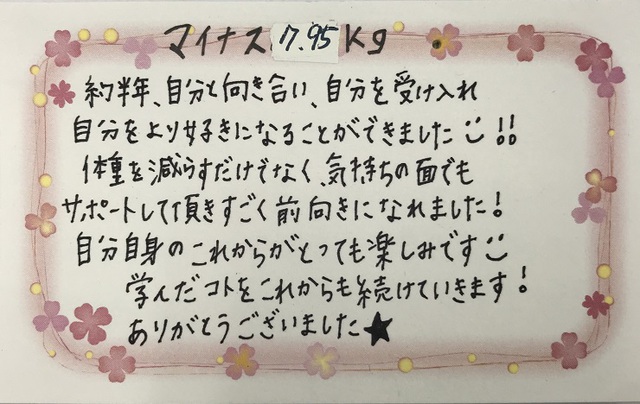 マイナス 7.95 Kg
約半年、自分と向き合い、自分を受け入れ
自分をより好きになることができました!!
体重を減らすだけでなく、気持ちの面でも
サポートして頂きすごく前向きになれました!
自分自身のこれからがとっても楽しみです
学んだコトをこれからも続けていきます!
ありがとうございました★